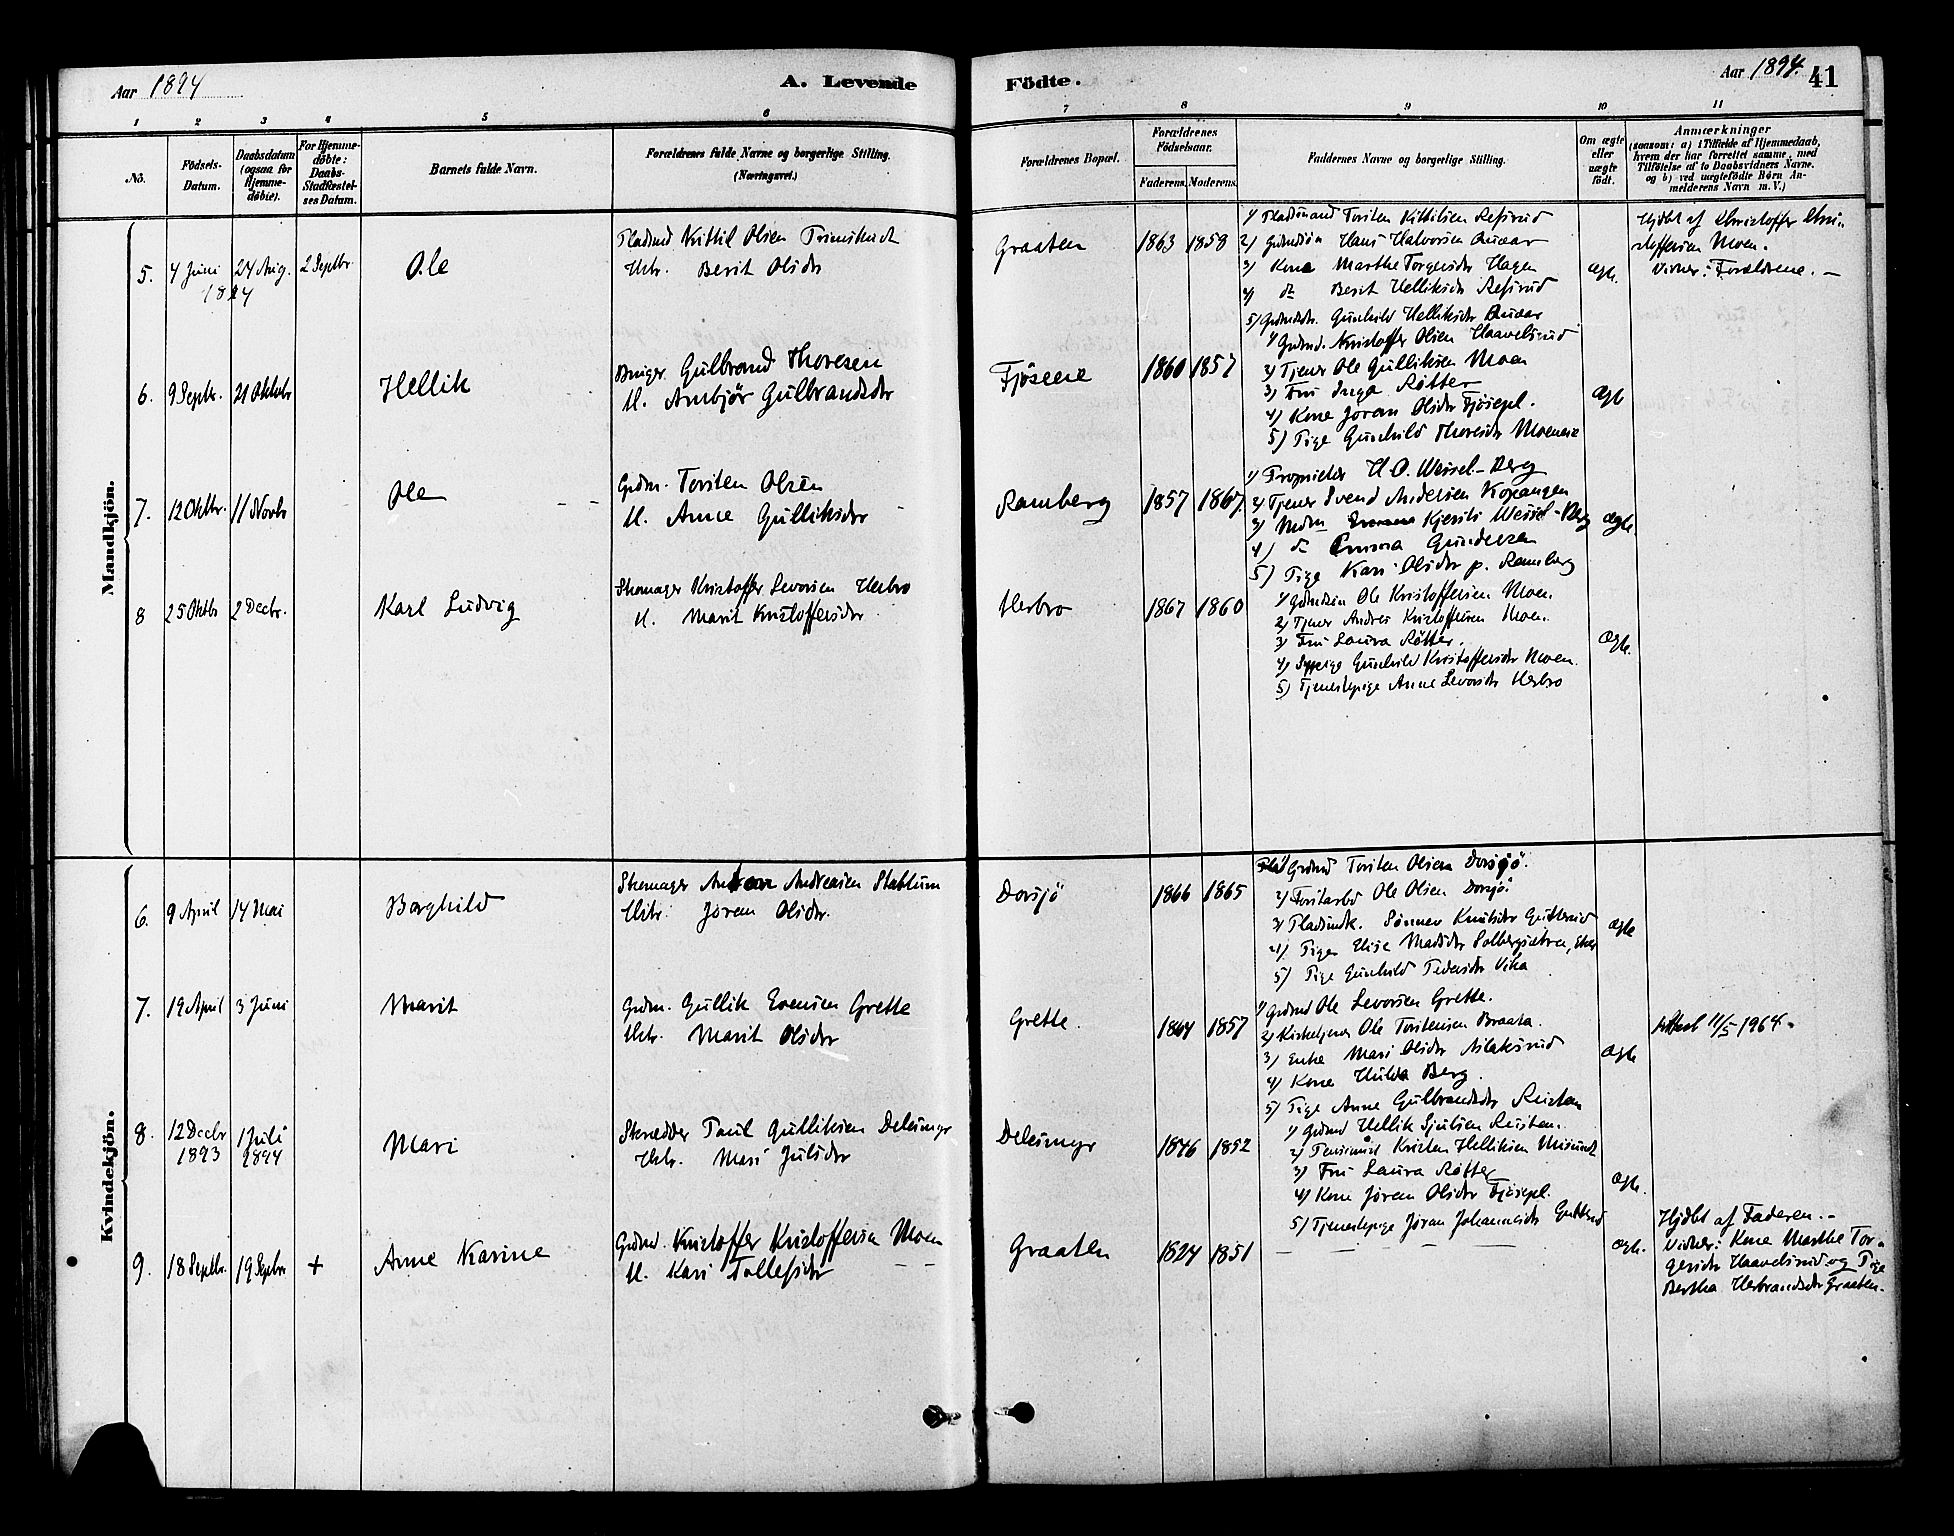 Aar 1894
A. Levende Födte.
Aar 1894. 41
1 2 3 4 5 6 7 8 9 10 11
No.
Födsels-Datum.
Daabsdatum (ogsaa for Hjemmedøbte).
For Hjemmedøbte: Daabs-Stadfæstelses Datum.
Barnets fulde Navn.
Forældrenes fulde Navne og borgerlige Stilling. (Næringsvei.)
Forældrenes Bopæl.
Forældrenes Födselsaar.
Faderens. Moderens.
Faddernes Navne og borgerlige Stilling.
Om ægte eller uægte födt.
Anmærkninger
(saasom: a) i Tilfælde af Hjemmedaab, hvem der har forrettet samme, med Tilføielse af to Daabsvidners Navne. og b) ved uægtefødte Børn Anmelderens Navn m. V.)
Mandkjön.
5. 4 Juni 1894 24 Aug. 2 Septbr. Ole
Pladsmd Kittil Olsen
Htr. Berit Olsdr
Graaten 1863 1858
1) Pladsmand Torsten Kittilsen Refsrud
2) Gdmdsøn Hans Halvorsen Ruaar
3) Kone Marthe Torgersdr Hagen
4) do Berit Helliksdr Refsrud
5) Gdmdsdtr. Gunhild Helliksdr Ruaar
Ægte.
Hjdbt af Christoffer Christoffersen Moen.
Vidner: Forældrene. -
6. 9 Septbr. 21 Oktbr Hellik
Gulbrand Thoresen
H. Ambjör Gulbrandsdr
Fjösene 1860 1857
1) Gdmd. Kristoffer Olsen Haavelsrud
2) Tjener Ole Gulliksen Moen
3) Fru Inga Røtter
4) Kone Joran Olsdr Fjösepl.
5) Pige Gunhild Thoresdr Moenene
Ægte
7. 12 Oktbr. 11 Novbr Ole
Gdm. Torsten Olsen
H. Anne Gulliksdr
Ramberg 1857 1867.
1) Proprietær H. O. Wessel-Berg
2) Tjener Svend Andersen Kopangen
3) Mdm Kjersti Wessel-Berg
4) do Emma Gundersen
5) Pige Kari Olsdr p. Ramberg
Ægte.
8 25 Oktbr 2 Decbr. Karl Ludvig
Skomager Kristoffer Levorsen Herbro
H. Marit Kristoffersdr
Herbro 1867 1860
1) Gdmdsøn Ole Kristoffersen Moen
2) Tjener Andres Kristoffersen Moen.
3) Fru Laura Røtter.
4) Sypige Gunhild Kristoffersdr Moen.
5) Tjenestepige Anne Levorsdr Herbro
Ægte.
Kvindekjön.
6. 9 April 14 Mai Borghild
Skomager Anton Andreasen Stablum
Hstr. Joran Olsdr.
Dorsjö 1866 1865
1) Grdmd Torsten Olsen Dorsjö.
2) Ole Olsen Dorsjö
3) Pladsmdk. Sönnev Knutsdr Gutterud
4) Pige Elise Madsdr
5) Pige Gunhild Pedersdr Vika
Ægte
7. 19 April 3 Juni Marit
Grdm. Gullik Evensen Grette
Hstr. Marit Olsdr
Grette. 1864 1857
1) Grdmd Ole Levorsen Grette.
2) Kirketjener Ole Torstensen Braata.
3) Enke Mari Olsdr Aslaksrud
4) Kone Hulda Berg
5) Pige Anne Gulbrandsdr Ruistan
Ægte
Attest 11/5 1964.
8. 12 Decbr 1893 1 Juli 1894 Mari
Skrædder Paul Gulliksen Deleimyr
Hstr. Mari Julsdr
Deleimyr 1846 1852
1) Grdmd Hellik Sjulsen Ruisten.
2) Kristen Helliksen
3) Fru Laura Røtter
4) Kone Jøran Olsdr Fjösepl.
5) Tjenestepige Jøran Johannesdr Gutterud
Ægte.
9. 18 Septbr. 19 Septbr + Anne Karine
Grdmd. Kristoffer Kristoffersen Moen
H. Kari Tollefsdr
Graaten 1824 1851
Ægte.
Hjdbt af Faderen. -
Vidner: Kone Marthe Torgersdr Haavelsrud og Pige
Bertha Herbrandsdr Graaten.